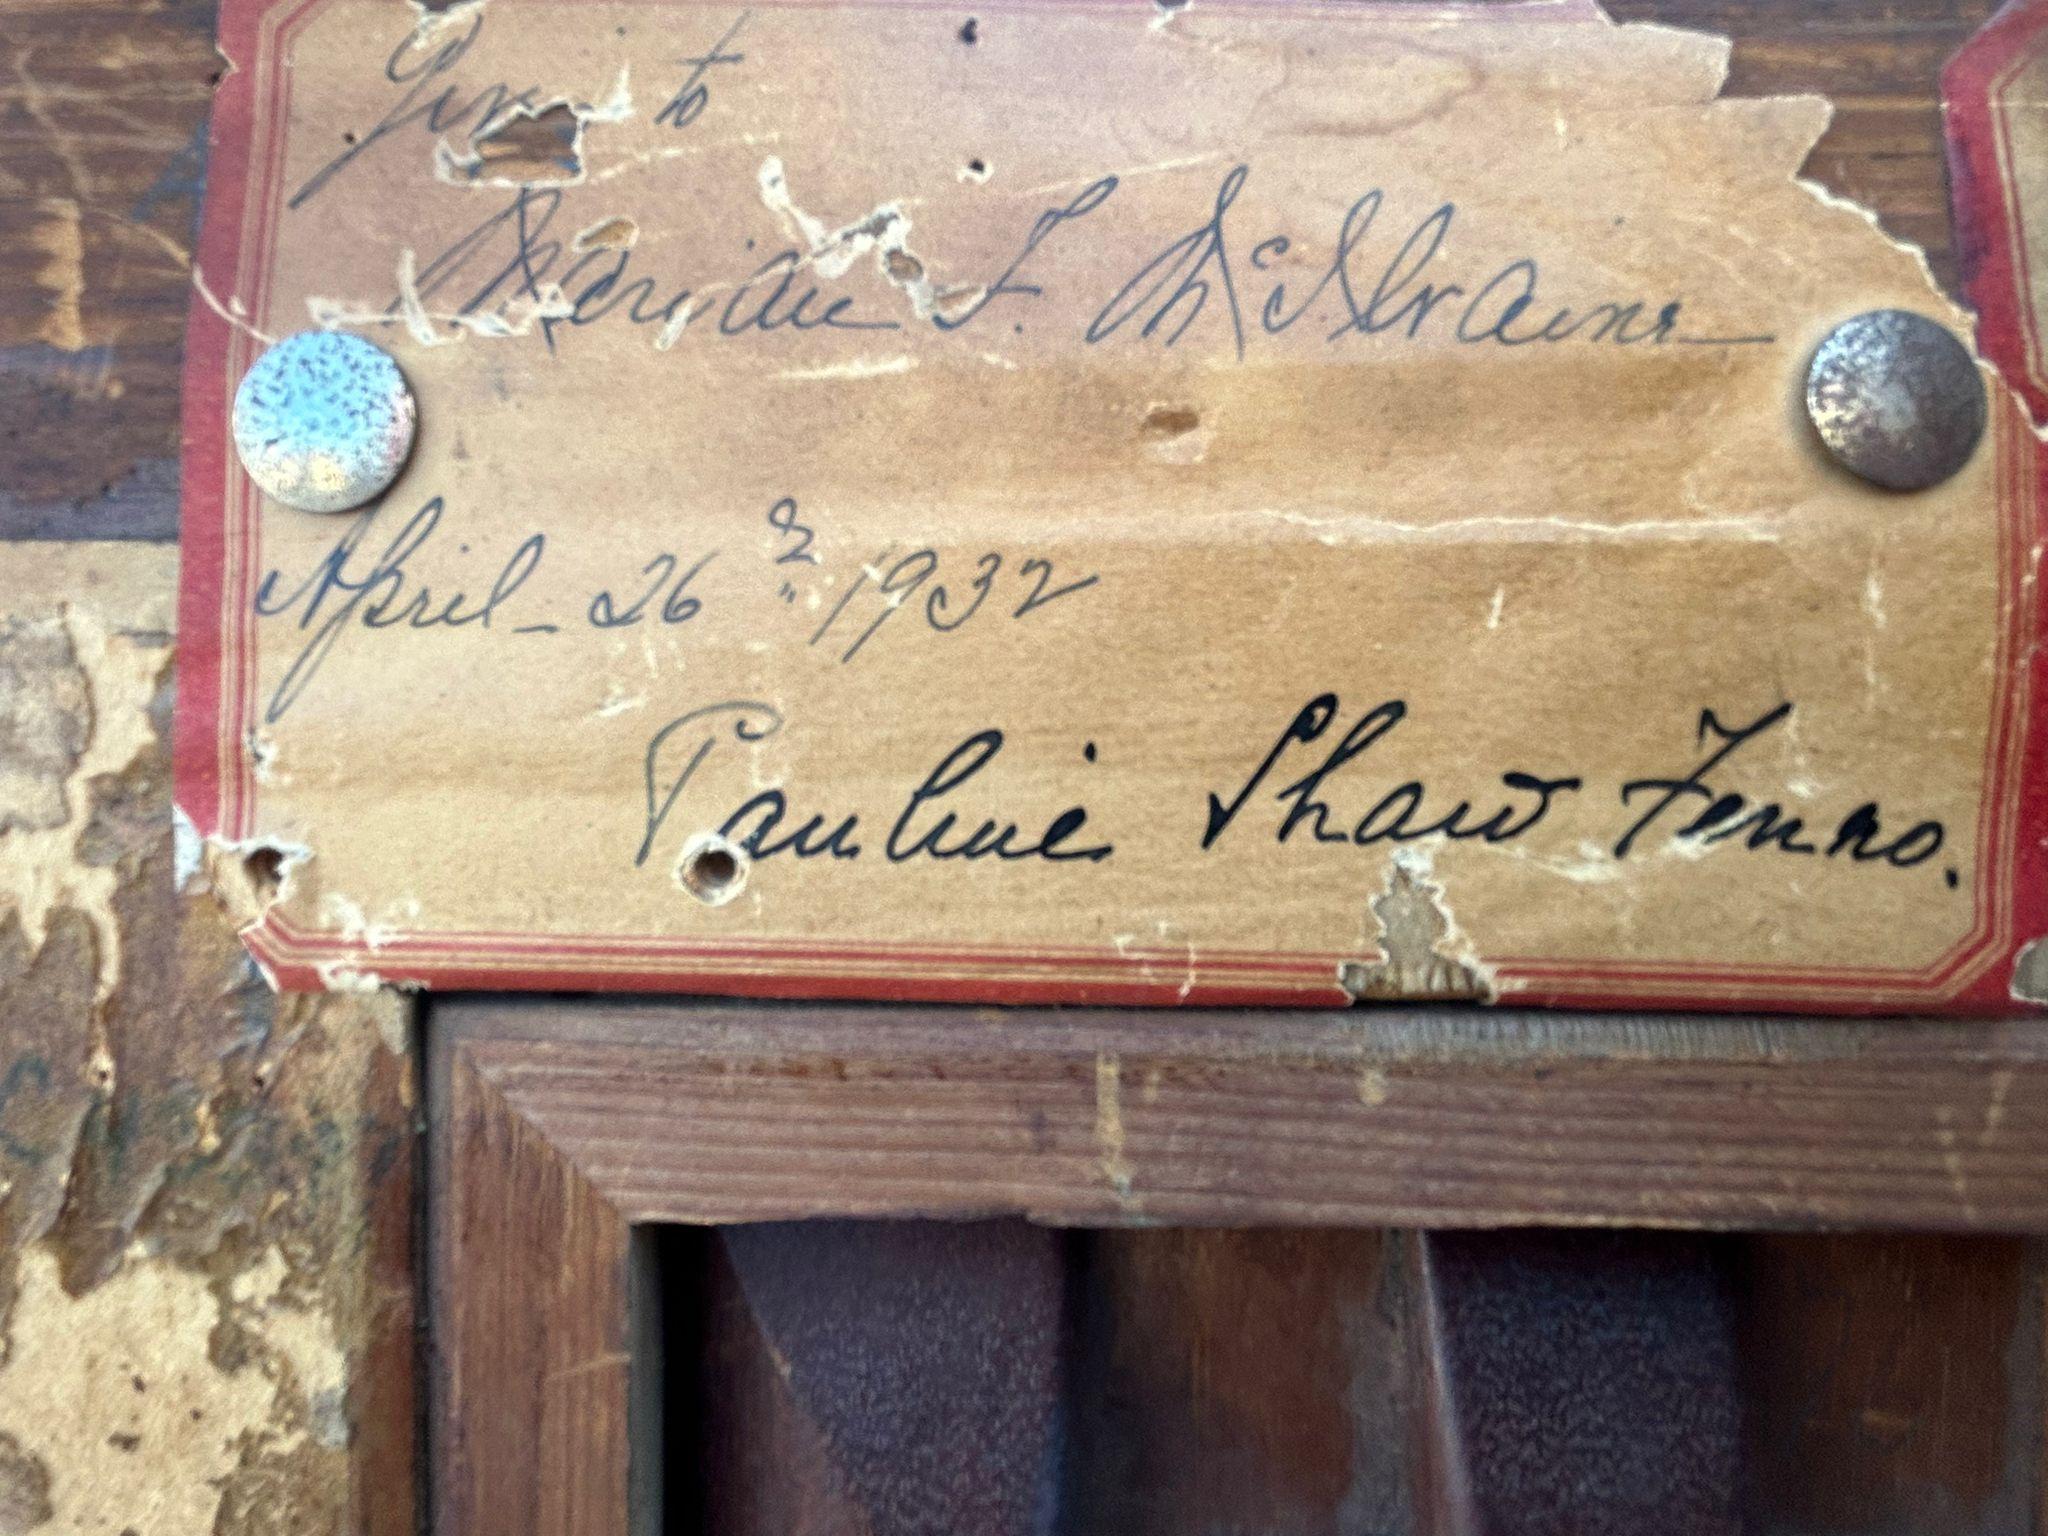 Given to
Marian F. McIlvaine
April - 26 1932
Pauline Shaw Fenno.